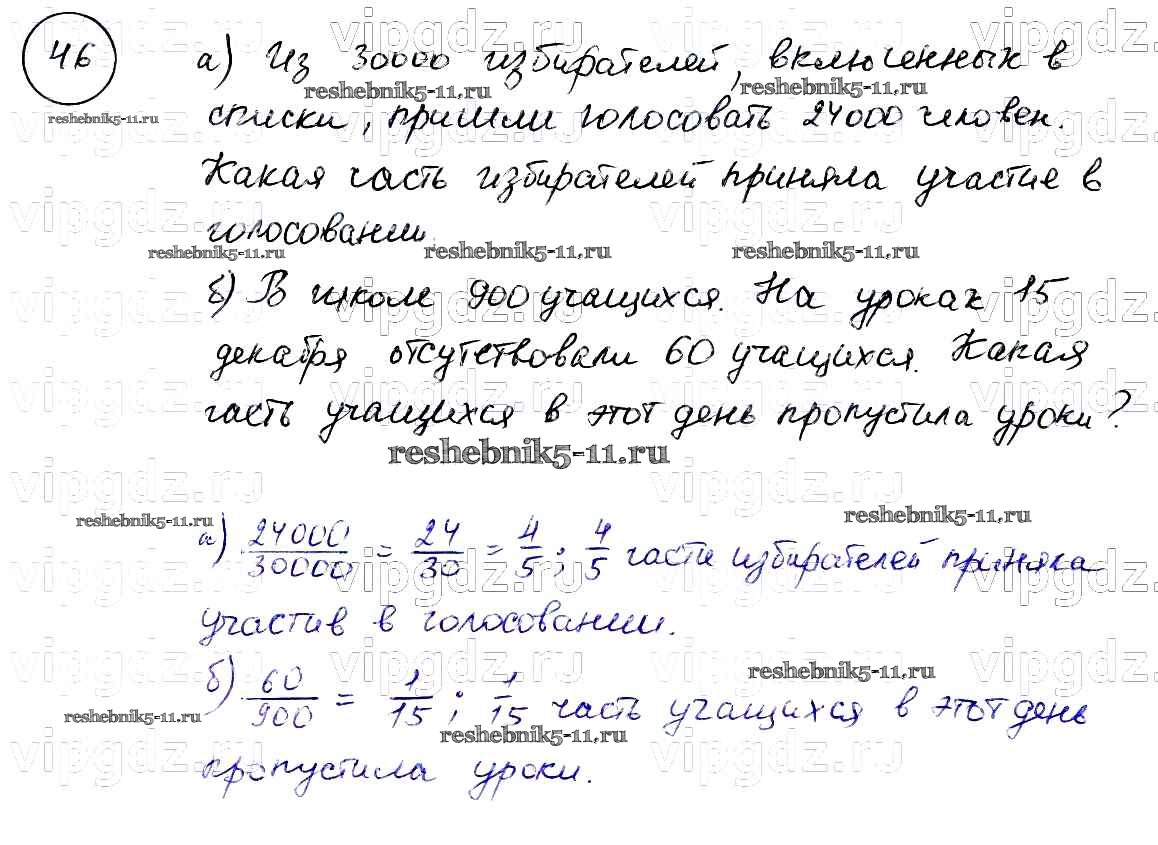 46
а) Из 30000 избирателей, включенных в
списки, пришли голосовать 24000 человек.
Какая часть избирателей приняла участие в
голосовании.
б) В школе 900 учащихся. На уроках 15
декабря отсутствовали 60 учащихся. Какая
часть учащихся в этот день пропустила уроки?
а) 24000/30000 = 24/30 = 4/5; 4/5 части избирателей приняла
участив в голосовании.
б) 60/900 = 1/15; 1/15 часть учащихся в этот день
пропустила уроки.
reshebnik5-11.ru
vipgdz.ru